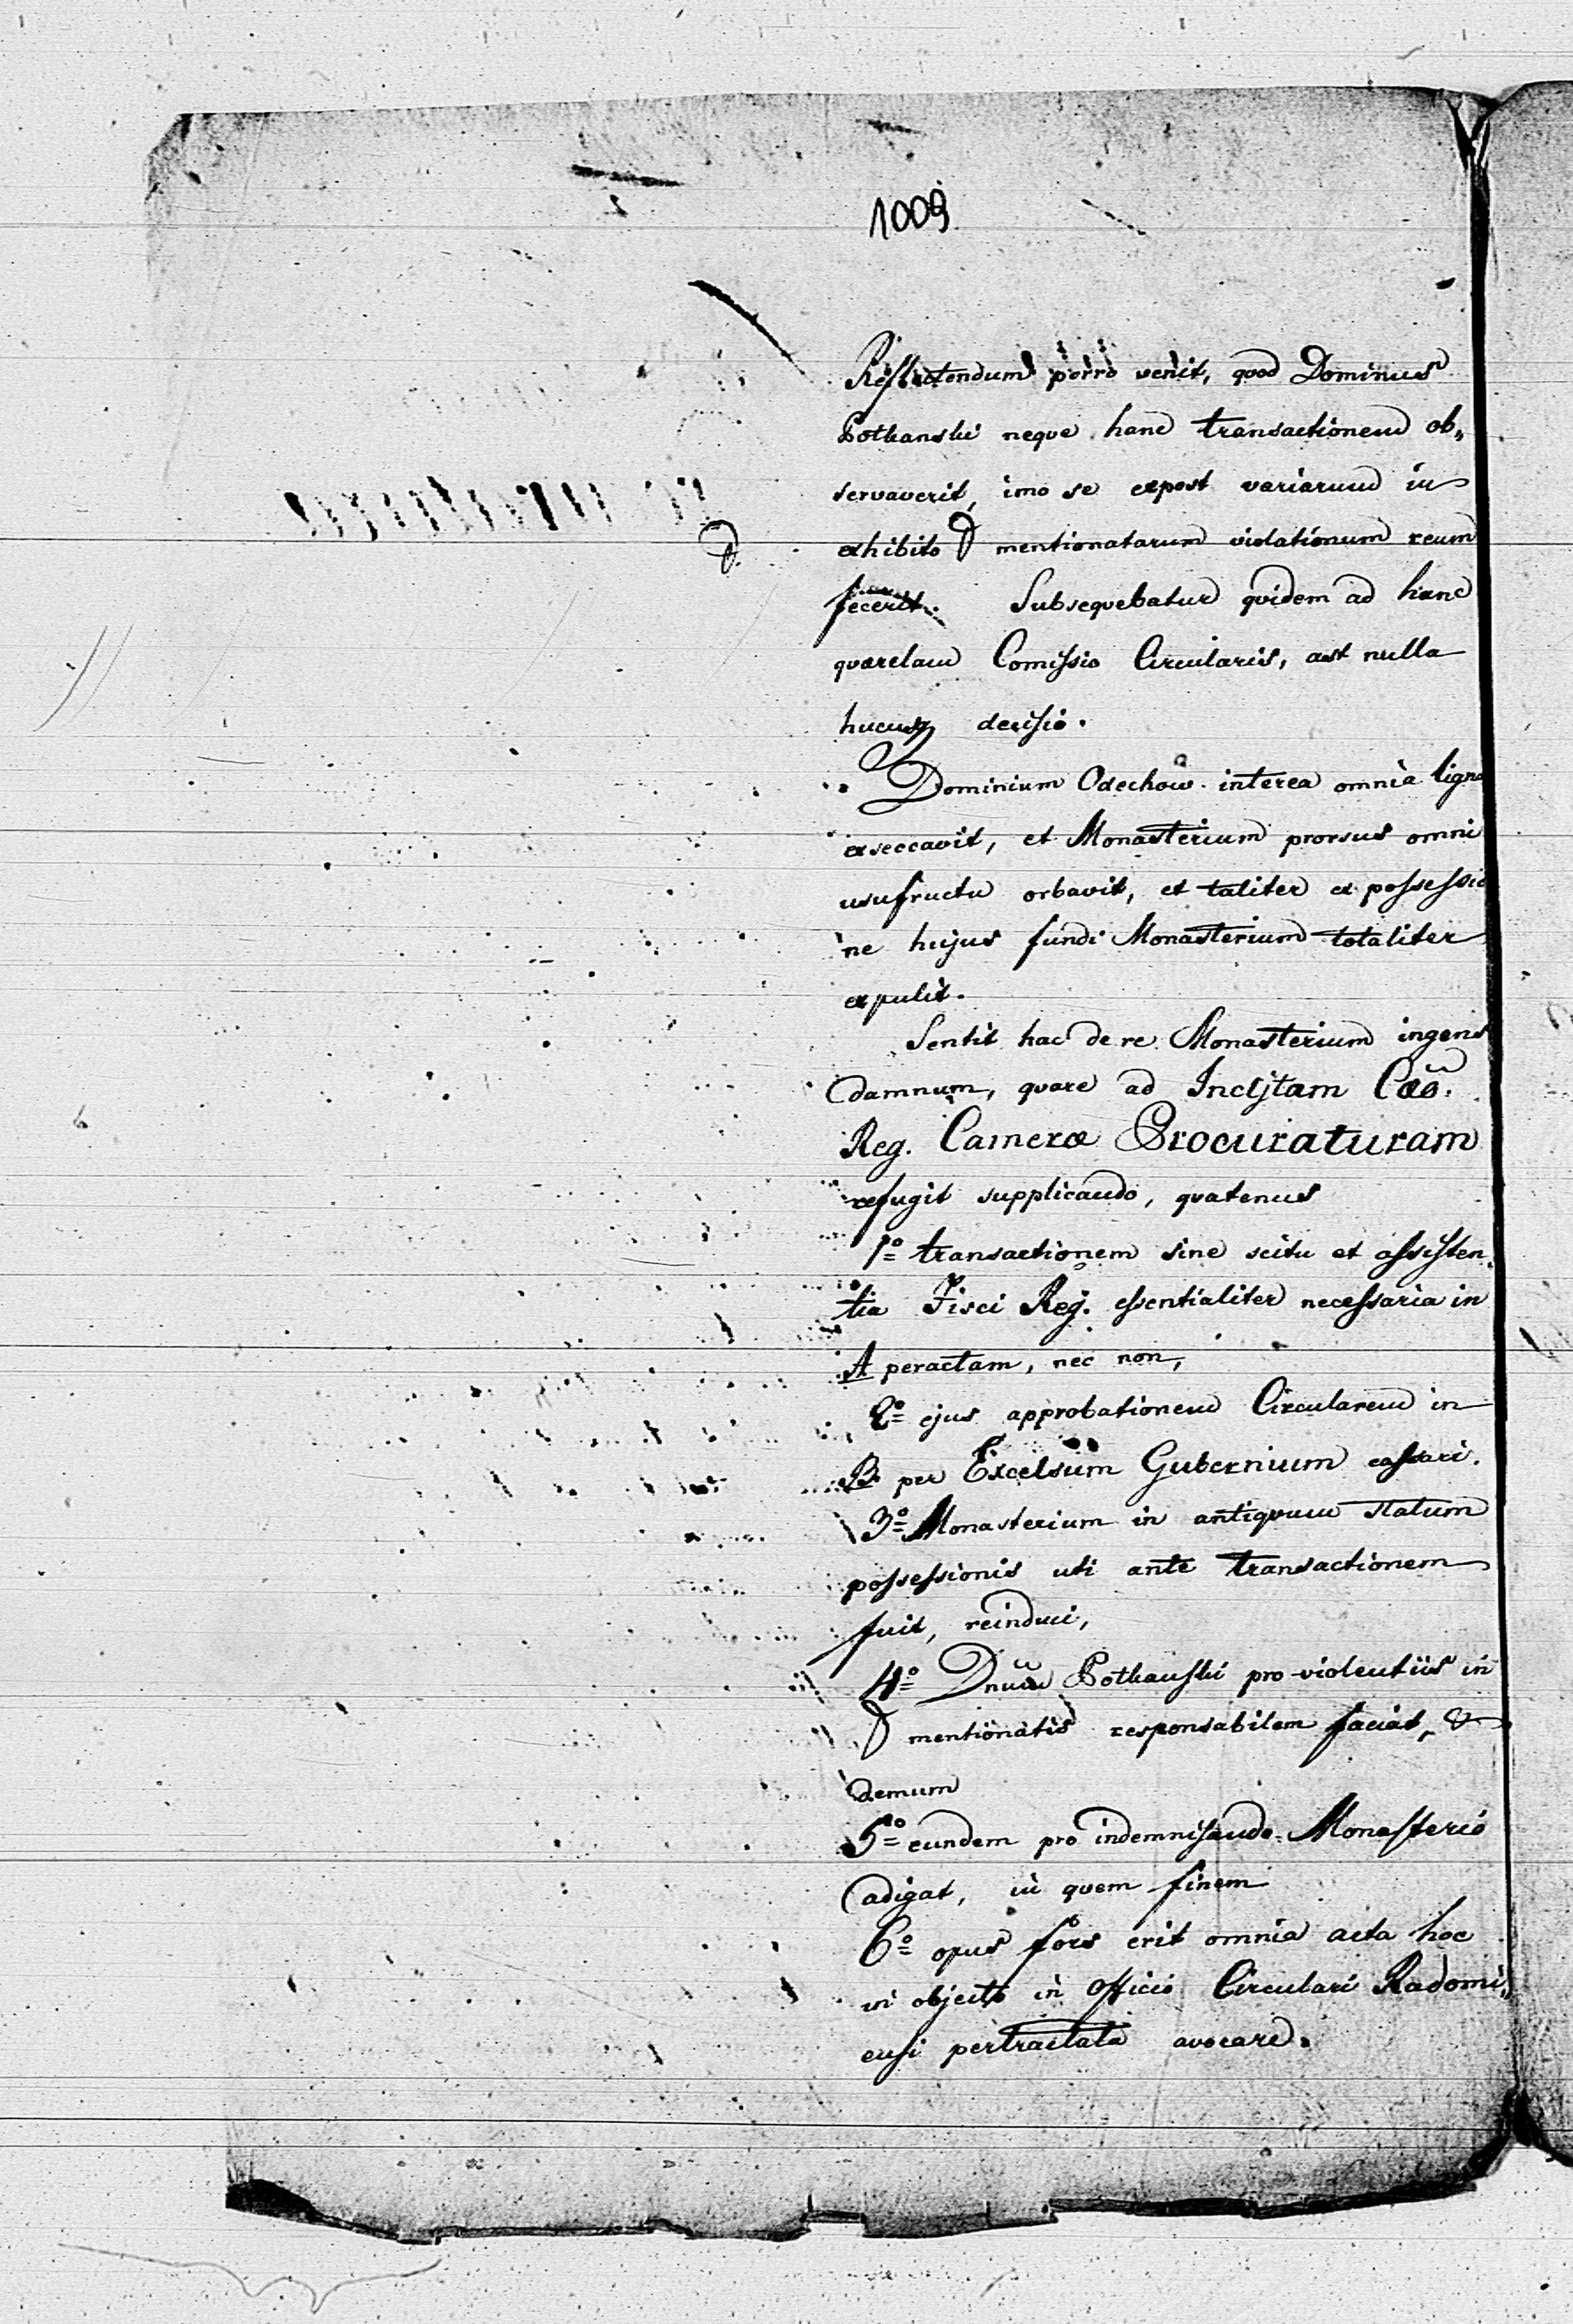 1009
Reflectendum porro venit, quod Dominus
Potkanski neque hanc transactionem ob„
servaverit, imo se expost variarum in
D. exhibito D mentionatarum violationum reum
fecerit. Subsequebatur quidem ad hanc
quærelam Comissio Circularis, ast nulla
hucusq decisio.
Dominium Odechow interea omnia ligna
exseccavit, et Monasterium prorsus omni
usufructu orbavit, et taliter ex possessio
ne hujus fundi Monasterium totaliter
expulit.
Sentit hac de re Monasterium ingens
damnum, quare ad Inclÿtam Cæo.
Reg. Cameræ Procuraturam
refugit supplicando, quatenus
1º transactionem sine scitu et assisten„
tia Fisci Reg. essentialiter necessaria in
A peractam, nec non,
2º ejus approbationem Circularem in
B. per Excelsum Gubernium cassari.
3º Monasterium in antiquum statum
possessionis uti ante transactionem
fuit, reinduci,
4º Dnum Potkanski pro violentiis in
D mentionatis responsabilem faciat, &
demum
5º eundem pro indemnisando Monasterio
adigat, in quem finem
6º opus fors erit omnia acta hoc
in objecto in Officio Circulari Radomi„
ensi pertractata avocare.